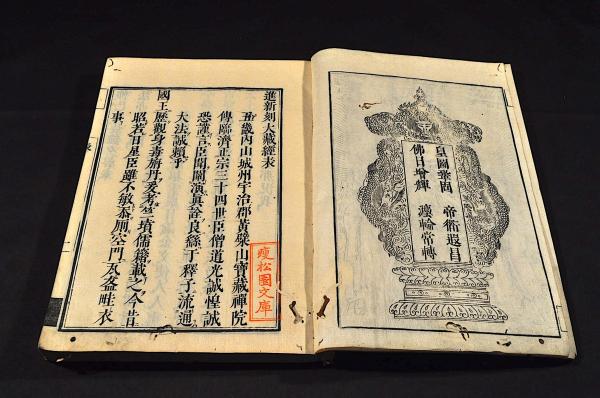 王
皇圖鞏固 帝衜遐昌
佛日增輝 灋輪常轉
進新刻大藏經表
五畿內山城州宇治郡黃檗山寶藏禪院
傳臨濟正宗三十四世臣僧道光誠惶誠
恐謹言臣聞闡演眞詮良繇于釋子流通
大法誠賴乎
國王歷觀身毒旃丹爰考竺墳儒籍載之今昔
昭若日星臣雖不敏忝廁空門瓦盆畦衣
事
瘦松園文庫